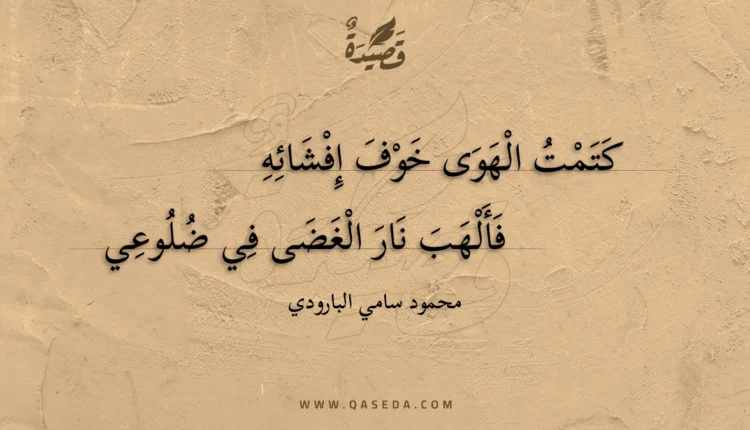 قَصِيدَةٌ
كَتَمْتُ الْهَوَى خَوْفَ إِفْشَائِهِ
فَأَلْهَبَ نَارَ الْغَضَى فِي ضُلُوعِي
محمود سامي البارودي
WWW.QASEDA.COM